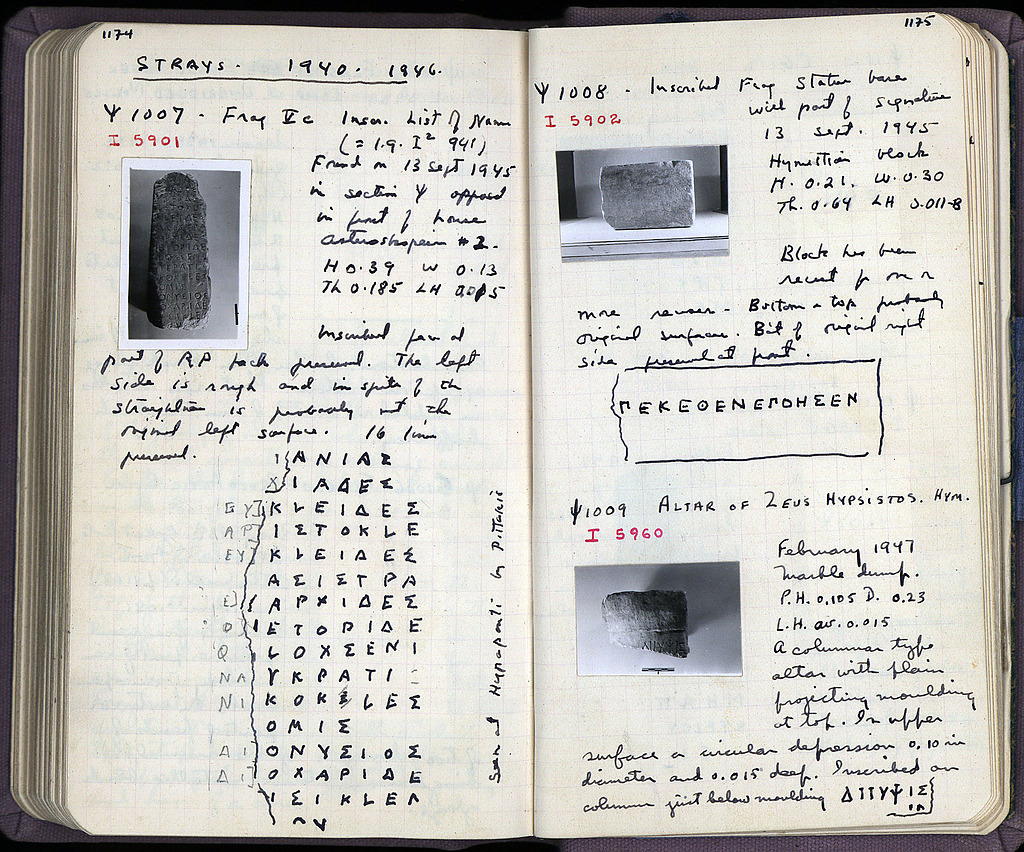 1174
STRAYS 1940 - 1946.
Ψ 1007 - Frag Vc Inscr. List of Names
I 5901
(= I.G. I² 941)
Found on 13 Sept 1945
in section Ψ opposed
in front of house
Asteroskopeion #2.
H 0.39 W 0.13
Th 0.185 LH
Inscribed face and
part of back preserved. The left
side is rough and in spite of the
straightness is probably not the
original left surface. 16 lines
preserved.
ΑΝΙΑΣ
Χ ΙΑΔΕΣ
ΕΥ] ΚLΕΙΔΕΣ
ΑΡ] ΙΣΤΟΚLΕ
ΕΥ] ΚLΕΙΔΕΣ
ΑΣΙΣΤΡΑ
Ε] ΑΡΧΙΔΕΣ
ΙΕΤΟΡΙΔΕ
LΟΧΣΕΝΙ
ΝΑ ΥΚΡΑΤΙ
ΝΙ ΚΟΚLΕΣ
ΟΜΙΣ
ΔΙ ΟΝΥΣΙΟΣ
ΔΙ ΟΧΑΡΙΔΕ
ΙΣΙΚLΕΛ
Seen at Hypapanti by Pittakis
1175
Ψ 1008 - Inscribed Frag Statue base
I 5902
with part of signature
13 Sept. 1945
Hymettian block
H. 0.21. W. 0.30
Th. 0.64 LH 0.011-8
Block has been
recut for one or
more reuses - Bottom + top probably
original surfaces. Bit of original right
side preserved at front.
ΠΕΚΕΘΕΝΕΠΟΗΣΕΝ
Ψ1009 ALTAR OF ZEUS HYPSISTOS. HYM.
I 5960
February 1947
Marble dump.
P.H. 0.105 D. 0.23
L.H. av. 0.015
A columnar type
altar with plain
projecting moulding
at top. In upper
surface a circular depression 0.10 in
diameter and 0.015 deep. Inscribed on
column just below moulding ΔΙΙΥΨΙΣ